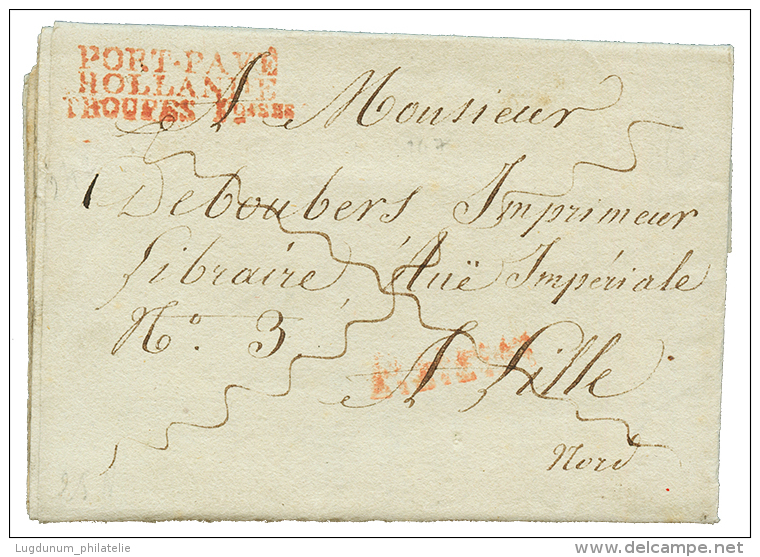 PORT-PAYÉ
HOLLANDE
TROUPES Fçaises
A Monsieur
Deboubers Imprimeur
Libraire, Ruë Impériale
N.o 3
A Lille
Nord
Lugdunum_philatelie
www.delcampe.net